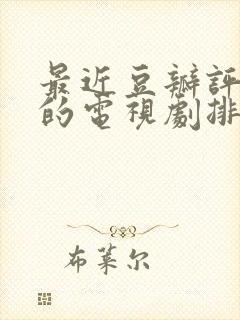 最近豆瓣評
的電視劇排
布莱尔